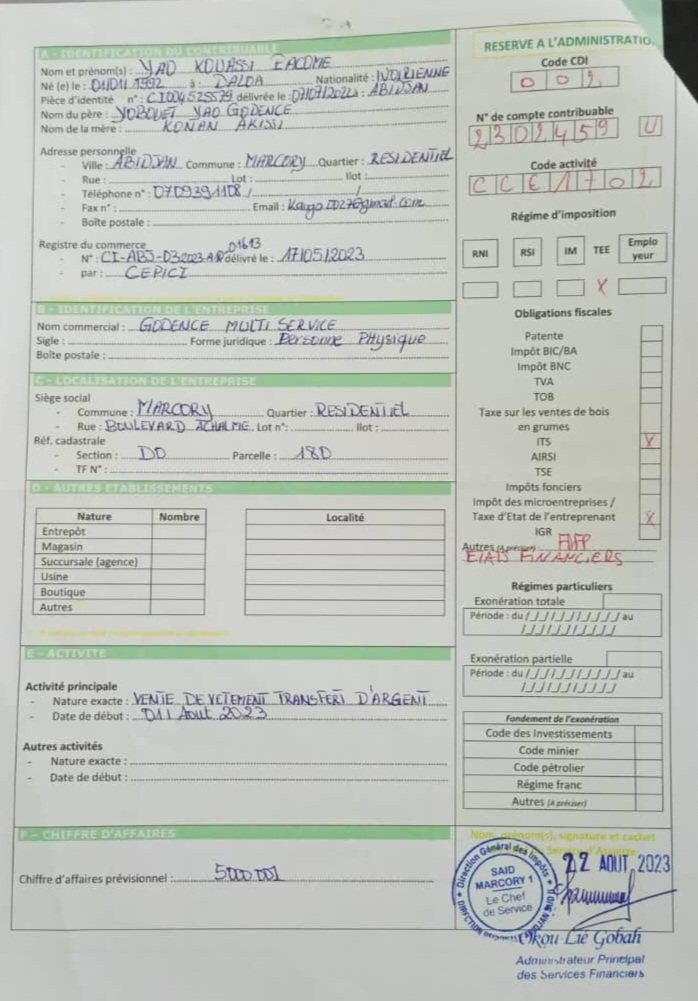 A - IDENTIFICATION DU CONTRIBUABLE
Nom et prénom(s) : YAO KOUASSI
Né (e) le : 01/01/1992 à : DALOA Nationalité : IVOIRIENNE
Pièce d'identité n° : CI004525579 délivrée le : ABIDJAN
Nom du père : YOBOUET YAO GODENCE
Nom de la mère : KONAN AKISSI
Adresse personnelle
- Ville : ABIDJAN Commune : MARCORY Quartier : RESIDENTIEL
- Rue : Lot : Ilot :
- Téléphone n° : 0709391108 / /
- Fax n° : Email :
- Boîte postale :
Registre du commerce 01613
- N° : CI-ABJ-03-2023-A10 délivré le : 17/05/2023
- par : CEPICI
B - IDENTIFICATION DE L'ENTREPRISE
Nom commercial : GODENCE MULTI SERVICE
Sigle : Forme juridique : Personne PHysique
Boîte postale :
C - LOCALISATION DE L'ENTREPRISE
Siège social
- Commune : MARCORY Quartier : RESIDENTIEL
- Rue : BOULEVARD ACHALME Lot n° : Ilot :
Réf. cadastrale
- Section : DO Parcelle : 180
- TF N° :
D - AUTRES ETABLISSEMENTS
Nature Nombre Localité
Entrepôt
Magasin
Succursale (agence)
Usine
Boutique
Autres
E - ACTIVITE
Activité principale
- Nature exacte : VENTE DE VETEMENT TRANSFERT D'ARGENT
- Date de début : 01 Aout 2023
Autres activités
- Nature exacte :
- Date de début :
F - CHIFFRE D'AFFAIRES
Chiffre d'affaires prévisionnel : 5000 001
RESERVE A L'ADMINISTRATIO
Code CDI
002
N° de compte contribuable
2302459 U
Code activité
CCE1702
Régime d'imposition
RNI RSI IM TEE Emplo
yeur
X
Obligations fiscales
Patente
Impôt BIC/BA
Impôt BNC
TVA
TOB
Taxe sur les ventes de bois
en grumes
ITS X
AIRSI
TSE
Impôts fonciers
Impôt des microentreprises /
Taxe d'Etat de l'entreprenant X
IGR
Autres (A préciser) FDFP
ETATS FINANCIERS
Régimes particuliers
Exonération totale
Période : du /_/_/_/_/_/_/_/_/ au
/_/_/_/_/_/_/_/_/
Exonération partielle
Période : du /_/_/_/_/_/_/_/_/ au
/_/_/_/_/_/_/_/_/
Fondement de l'exonération
Code des Investissements
Code minier
Code pétrolier
Régime franc
Autres (A préciser)
Nom, prénom(s), signature et cachet
du Service d'Assiette
Direction Général des Impôts
SAID
MARCORY 1
Le Chef
de Service
22 AOUT 2023
Okou Lié Gobah
Administrateur Principal
des Services Financiers